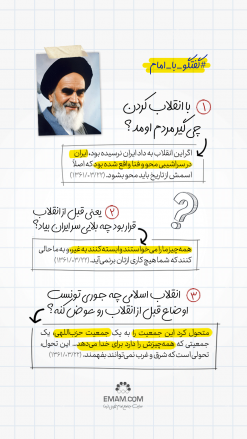 #گفتگو_با_امام
۱ با انقلاب کردن
چی گیر مردم اومد؟
اگر این انقلاب به داد ایران نرسیده بود، ایران
در سراشیبی محو و فنا واقع شده بود که اصلاً
اسمش از تاریخ باید محو بشود. (۱۳۶۱/۰۳/۲۲)
۲ یعنی قبل از انقلاب
قرار بود چه بلایی سر ایران بیاد؟
همه چیز ما را می‌خواستند وابسته کنند به غیر، و به ما حالی
کنند که شما هیچ کاری ازتان برنمی‌آید. (۱۳۶۱/۰۳/۲۲)
۳ انقلاب اسلامی چه جوری تونست
اوضاع قبل از انقلاب رو عوض کنه؟
متحول کرد این جمعیت را به یک جمعیت حزب‌اللهی، یک
جمعیتی که همه‌چیزش را دارد برای خدا می‌دهد... این تحول،
تحولی است که شرق و غرب نمی‌توانند بفهمند. (۱۳۶۱/۰۳/۲۲)
EMAM.COM